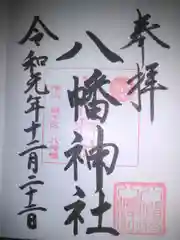 奉拝
八幡神社
令和元年十二月二十二日